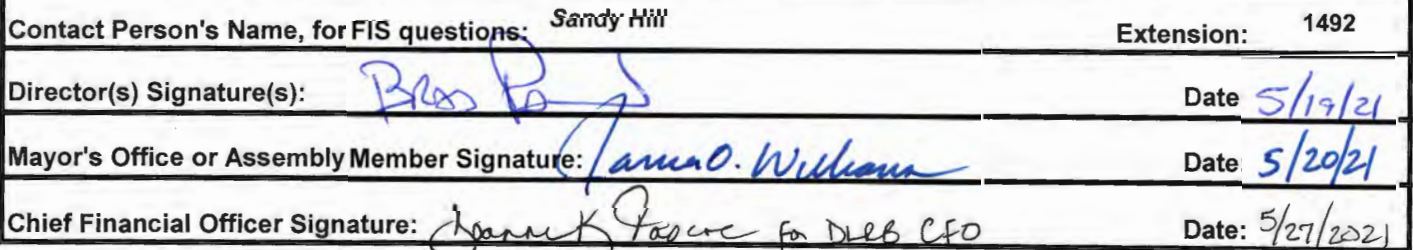 Contact Person's Name, for FIS questions: Sandy Hill Extension: 1492
Director(s) Signature(s): Brad Date 5/19/21
Mayor's Office or Assembly Member Signature: O. Williams Date 5/20/21
Chief Financial Officer Signature: Joanne K for CFO Date: 5/27/2021